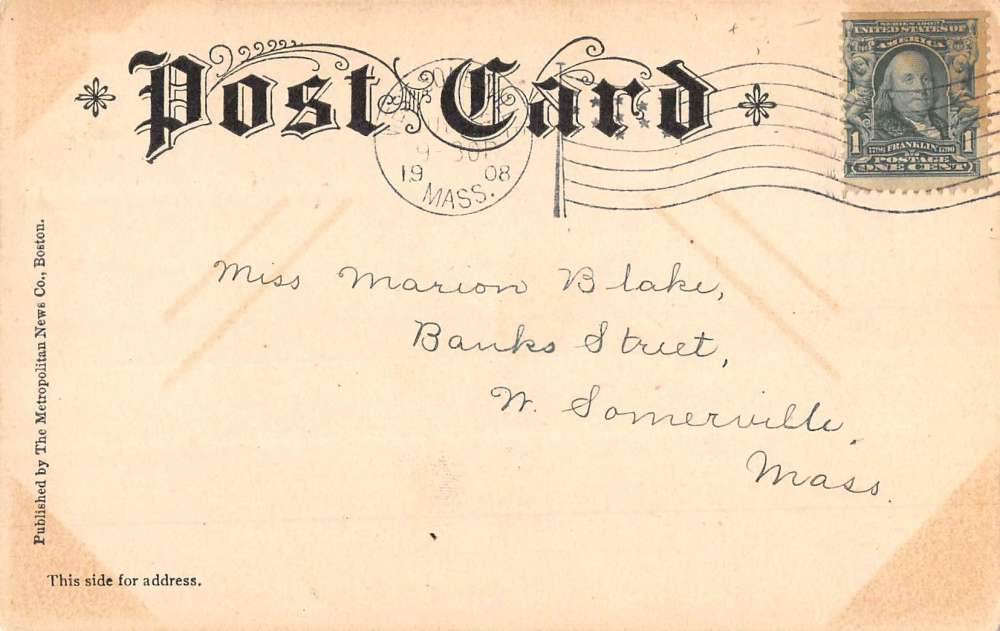 Post Card
UNITED STATES OF
AMERICA
1 1
FRANKLIN
POSTAGE
ONE CENT
19 08
MASS.
Miss Marion Blake,
Banks Street,
W. Somerville,
Mass.
Published by The Metropolitan News Co., Boston.
This side for address.